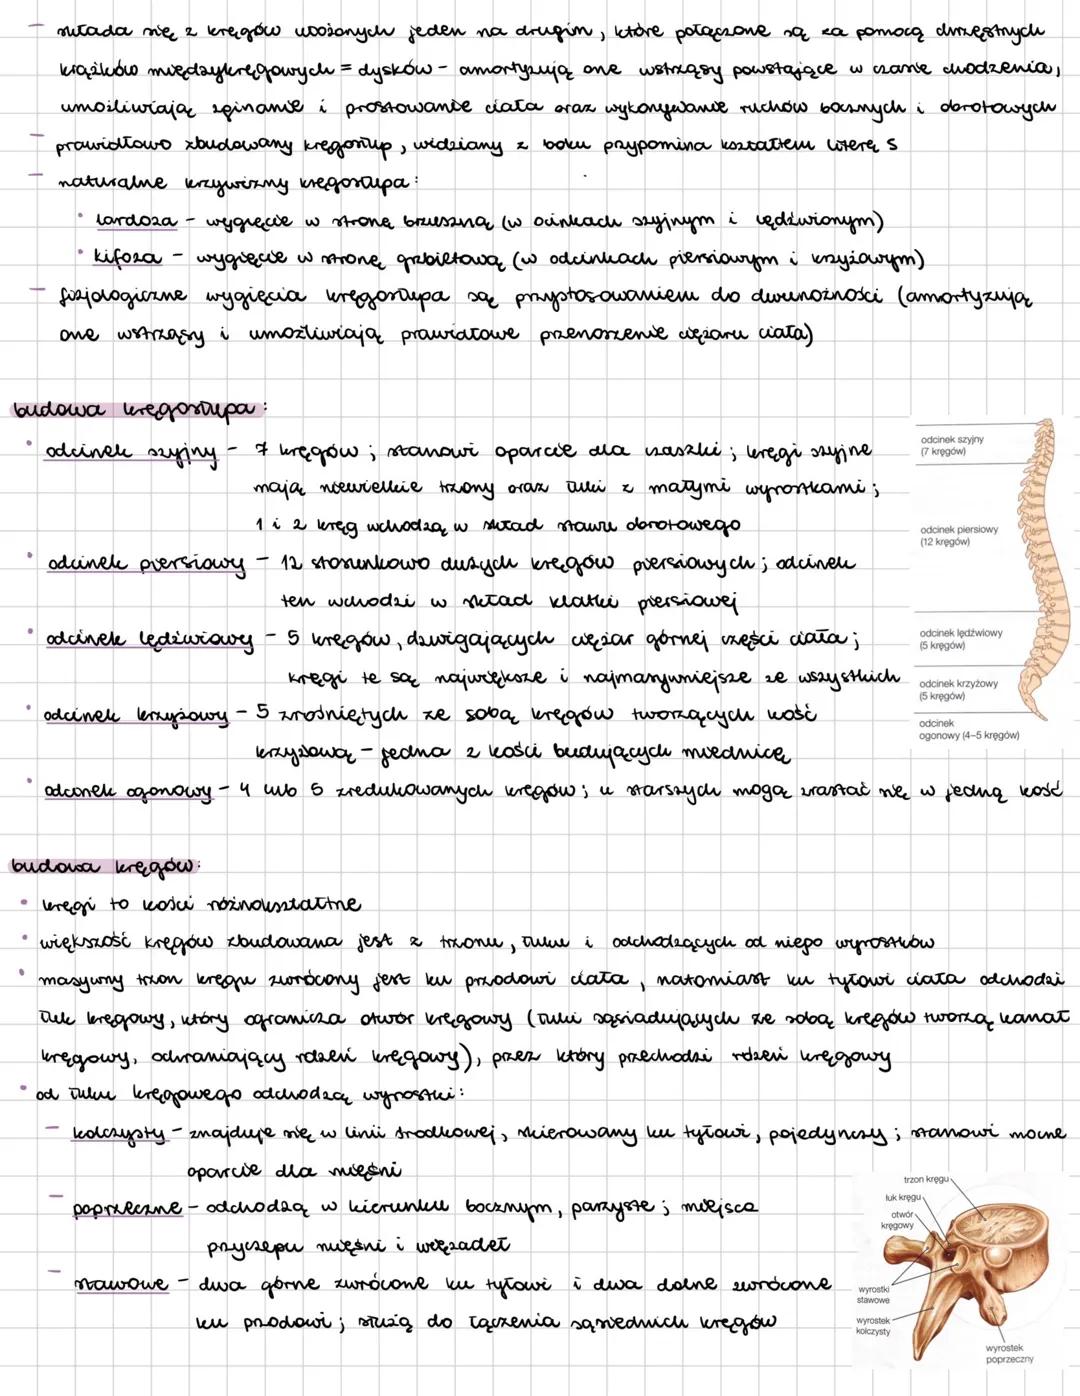 – składa się z kręgów ułożonych jeden na drugim, które połączone są za pomocą chrzęstnych
krążków międzykręgowych = dysków – amortyzują one wstrząsy powstające w czasie chodzenia,
umożliwiają zginanie i prostowanie ciała oraz wykonywanie ruchów bocznych i obrotowych
– prawidłowo zbudowany kręgosłup, widziany z boku przypomina kształtem literę S
– naturalne krzywizny kręgosłupa:
• lordoza – wygięcie w stronę brzuszną (w ocinkach szyjnym i lędźwionym)
• kifoza – wygięcie w stronę grzbietową (w odcinkach piersiowym i krzyżowym)
– fizjologiczne wygięcia kręgosłupa są przystosowaniem do dwunożności (amortyzują
one wstrząsy i umożliwiają prawidłowe przenoszenie ciężaru ciała)
budowa kręgosłupa:
• odcinek szyjny – 7 kręgów; stanowi oparcie dla czaszki; kręgi szyjne
mają niewielkie trzony oraz łuki z małymi wyrostkami;
1 i 2 kręg wchodzą w skład stawu obrotowego
• odcinek piersiowy – 12 stosunkowo dużych kręgów piersiowych; odcinek
ten wchodzi w skład klatki piersiowej
• odcinek lędźwiowy – 5 kręgów, dźwigających ciężar górnej części ciała;
kręgi te są największe i najmasywniejsze ze wszystkich
• odcinek krzyżowy – 5 zrośniętych ze sobą kręgów tworzących kość
krzyżową – jedna z kości budujących miednicę
• odcinek ogonowy – 4 lub 5 zredukowanych kręgów; u starszych mogą zrastać się w jedną kość
odcinek szyjny
(7 kręgów)
odcinek piersiowy
(12 kręgów)
odcinek lędźwiowy
(5 kręgów)
odcinek krzyżowy
(5 kręgów)
odcinek
ogonowy (4–5 kręgów)
budowa kręgów:
• kręgi to kości różnokształtne
• większość kręgów zbudowana jest z trzonu, łuku i odchodzących od niego wyrostków
• masywny trzon kręgu zwrócony jest ku przodowi ciała, natomiast ku tyłowi ciała odchodzi
łuk kręgowy, który ogranicza otwór kręgowy (łuki sąsiadujących ze sobą kręgów tworzą kanał
kręgowy, ochraniający rdzeń kręgowy), przez który przechodzi rdzeń kręgowy
• od łuku kręgowego odchodzą wyrostki:
– kolczysty – znajduje się w linii środkowej, skierowany ku tyłowi, pojedynczy; stanowi mocne
oparcie dla mięśni
– poprzeczne – odchodzą w kierunku bocznym, parzyste; miejsca
przyczepu mięśni i więzadeł
– stawowe – dwa górne zwrócone ku tyłowi i dwa dolne zwrócone
ku przodowi; służą do łączenia sąsiednich kręgów
trzon kręgu
łuk kręgu
otwór
kręgowy
wyrostki
stawowe
wyrostek
kolczysty
wyrostek
poprzeczny